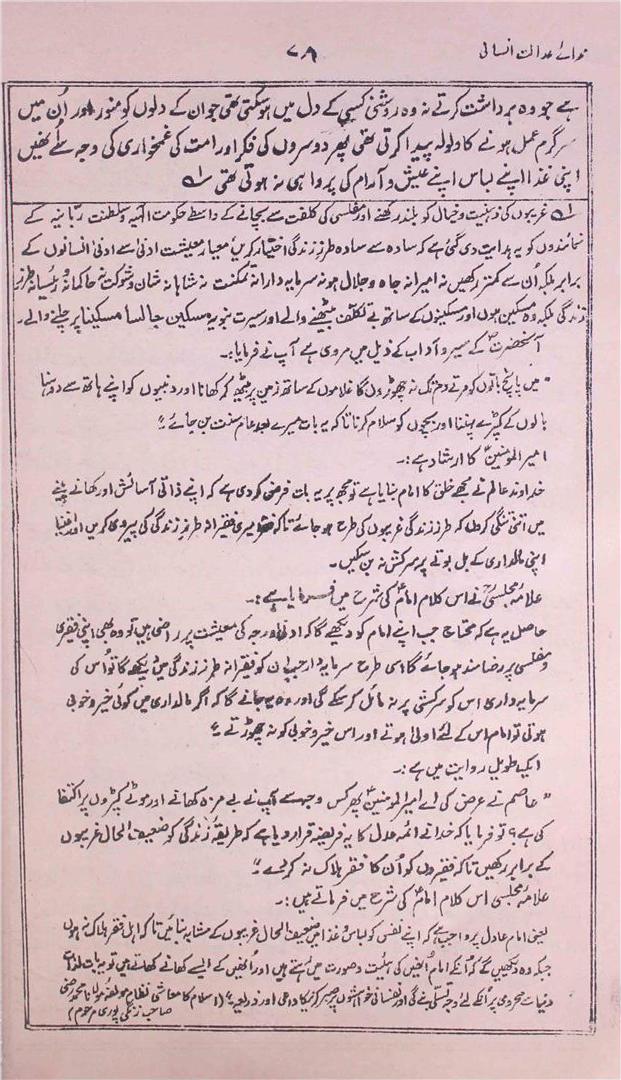 ندائے عدالت انسانی ۷۹
ہے جو وہ برداشت کرتے نہ وہ روشنی کسی کے دل میں ہو سکتی تھی جو ان کے دلوں کو منور اور اُن میں
سرگرم عمل ہونے کا ولولہ پیدا کرتی تھی پھر دوسروں کی فکر اور امت کی غمخواری کی وجہ سے اُنھیں
اپنی غذا اپنے لباس اپنے عیش و آرام کی پروا ہی نہ ہوتی تھی ؎۱
؎۱ غریبوں کی ذہنیت و خیال کو بلند رکھنے اور مفلسی کی کلفت سے بچانے کے واسطے حکومت الٰہیہ و سلطنت ربانیہ کے
نمائندوں کو یہ ہدایت دی گئی ہے کہ سادہ سے سادہ طرز زندگی اختیار کریں، معیار معیشت ادنیٰ سے ادنیٰ انسانوں کے
برابر بلکہ اُن سے کمتر رکھیں نہ امیرانہ جاہ و جلال ہو نہ سرمایہ دارانہ تمکنت نہ شاہانہ شان و شوکت نہ حاکمانہ و رئیسانہ طرز
زندگی بلکہ وہ مسکین ہوں اور مسکینوں کے ساتھ بے تکلف بیٹھنے والے اور سیرت نبویہ مسکین جالسا مسکینا پر چلنے والے۔
آنحضرتؐ کے سیر و آداب کے ذیل میں مروی ہے آپ نے فرمایا:۔
"میں پانچ باتوں کو مرتے دم تک نہ چھوڑوں گا غلاموں کے ساتھ زمین پر بیٹھ کر کھانا اور دنبیوں کو اپنے ہاتھ سے دوہنا
بالوں کے کپڑے پہننا اور بچوں کو سلام کرنا تاکہ یہ بات میرے بعد عام سنت بن جائے۔"
امیر المومنینؑ کا ارشاد ہے:۔
خداوند عالم نے مجھے خلق کا امام بنایا ہے تو مجھ پر یہ بات فرض کر دی ہے کہ اپنے ذاتی آسائش اور کھانے پینے
میں اتنی تنگی کر لوں کہ طرز زندگی غریبوں کی طرح ہو جائے تاکہ فقیر میری فقیرانہ طرز زندگی کی پیروی کریں اور اغنیا
اپنی مالداری کے بل بوتے پر سرکش نہ بن سکیں۔
علامہ مجلسیؒ نے اس کلام امامؑ کی شرح میں فرمایا ہے:۔
حاصل یہ ہے کہ محتاج جب اپنے امام کو دیکھے گا کہ ادنیٰ درجہ کی معیشت پر راضی ہیں تو وہ بھی اپنی فقیری
و مفلسی پر رضامند ہو جائے گا اسی طرح سرمایہ دار جب ان کو فقیرانہ طرز زندگی میں دیکھے گا تو اُس کی
سرمایہ داری اس کو سرکشی پر نہ مائل کر سکے گی اور وہ یہ جانے گا کہ اگر مالداری میں کوئی خیر و خوبی
ہوتی تو امام اس کے لئے اولیٰ ہوتے اور اس خیر و خوبی کو نہ چھوڑتے۔"
ایک طویل روایت میں ہے:۔
"عاصم نے عرض کی اے امیر المومنینؑ پھر کس وجہ سے آپ نے بے مزہ کھانے اور موٹے کپڑوں پر اکتفا
کی ہے؟ تو فرمایا کہ خدا نے ائمہ عدل کا یہ فریضہ قرار دیا ہے کہ طریقۂ زندگی کو ضعیف الحال غریبوں
کے برابر رکھیں تاکہ فقیروں کو اُن کا فقر ہلاک نہ کر دے۔"
علامہ مجلسی اس کلام امامؑ کی شرح میں فرماتے ہیں:۔
یعنی امام عادل پر واجب ہے کہ اپنے نفس کو لباس و غذا میں ضعیف الحال غریبوں کے مشابہ بنائیں تاکہ اہل فقر ہلاک نہ ہوں
جبکہ وہ دیکھیں گے کہ اُنکے امام اُنھیں کی ہیئت و صورت میں رہتے ہیں اور اُنھیں کے ایسے کھانے کھاتے ہیں تو یہ بات لذات
دنیا سے محرومی پر اُنکے لئے وجہ تسلی بنے گی اور نفسانی خواہشوں پر صبر کرنیکا داعی اور ذریعہ۔" (اسلام کا معاشی نظام مولفہ مولانا محمد رضی
صاحب زنگی پوری مرحوم)